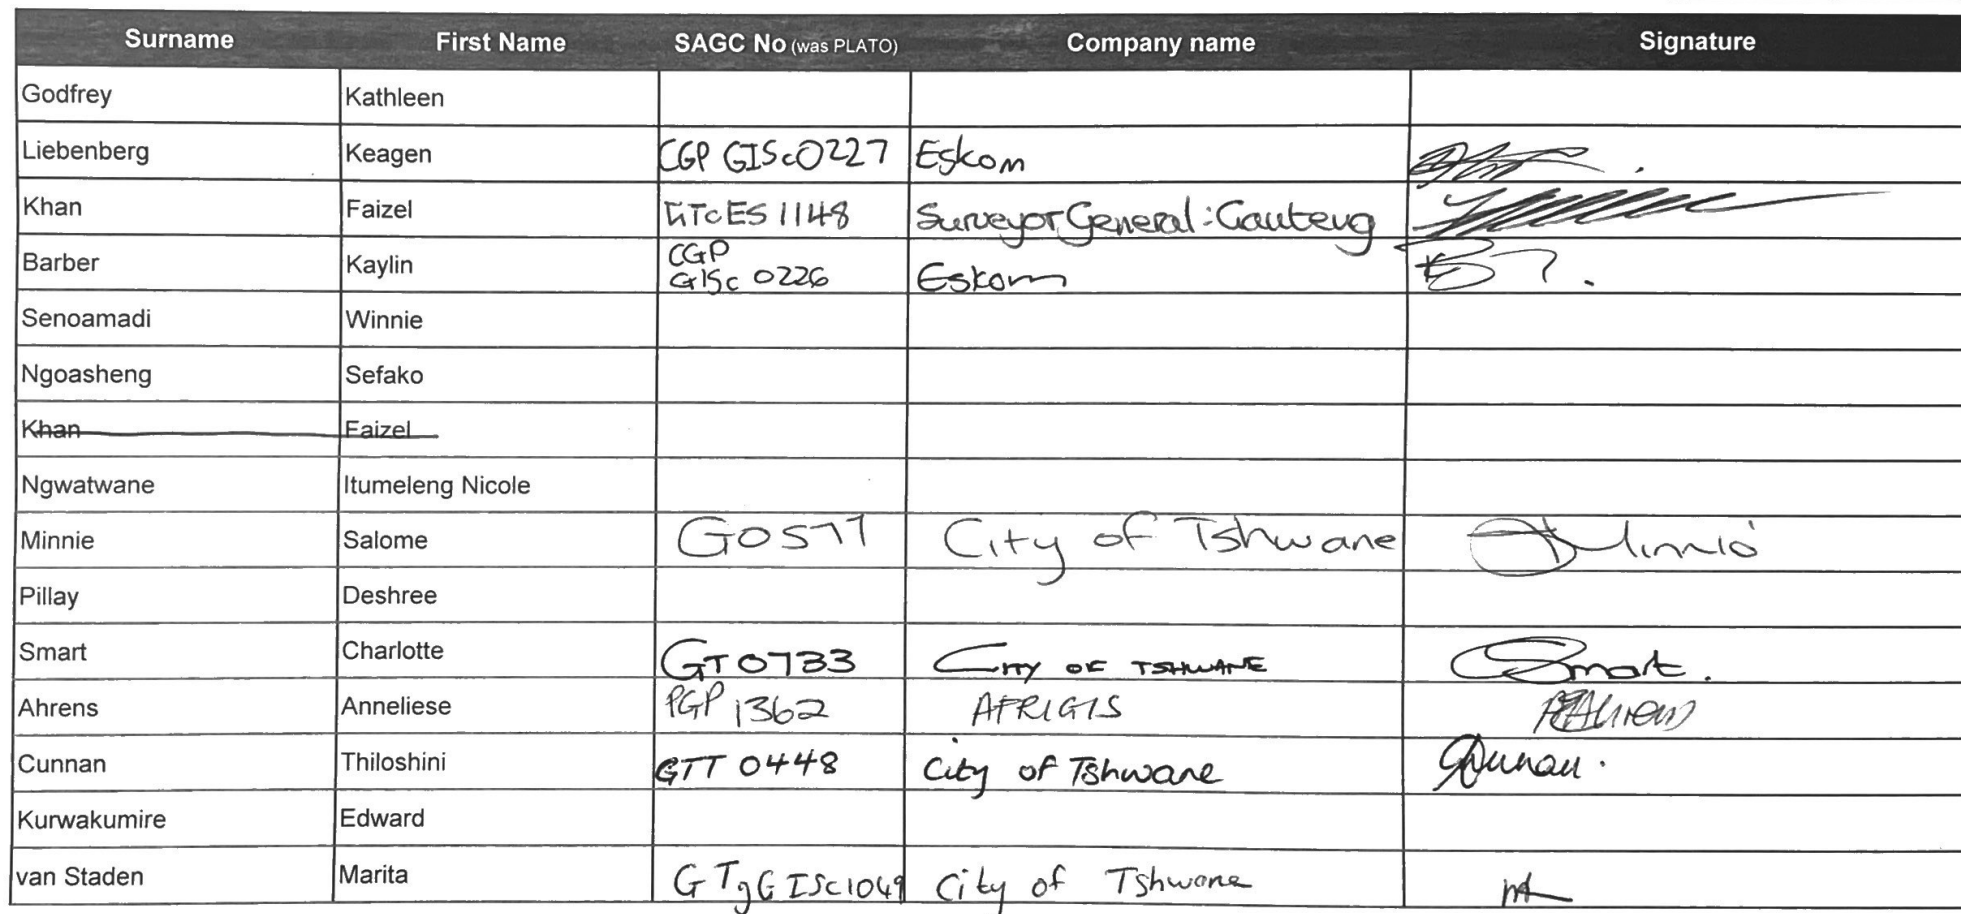 Surname First Name SAGC No (was PLATO) Company name Signature
Godfrey Kathleen
Liebenberg Keagen CGP GISc0227 Eskom
Khan Faizel 1148 Surveyor General: Gauteng
Barber Kaylin CGP GISc 0226 Eskom
Senoamadi Winnie
Ngoasheng Sefako
Khan Faizel
Ngwatwane Itumeleng Nicole
Minnie Salome G0577 City of Tshwane Minnie
Pillay Deshree
Smart Charlotte GT0733 CITY OF TSHWANE Smart.
Ahrens Anneliese PGP 1362 AFRIGIS Ahrens
Cunnan Thiloshini GTT 0448 City of Tshwane Cunnan.
Kurwakumire Edward
van Staden Marita GTgGISc1049 City of Tshwane